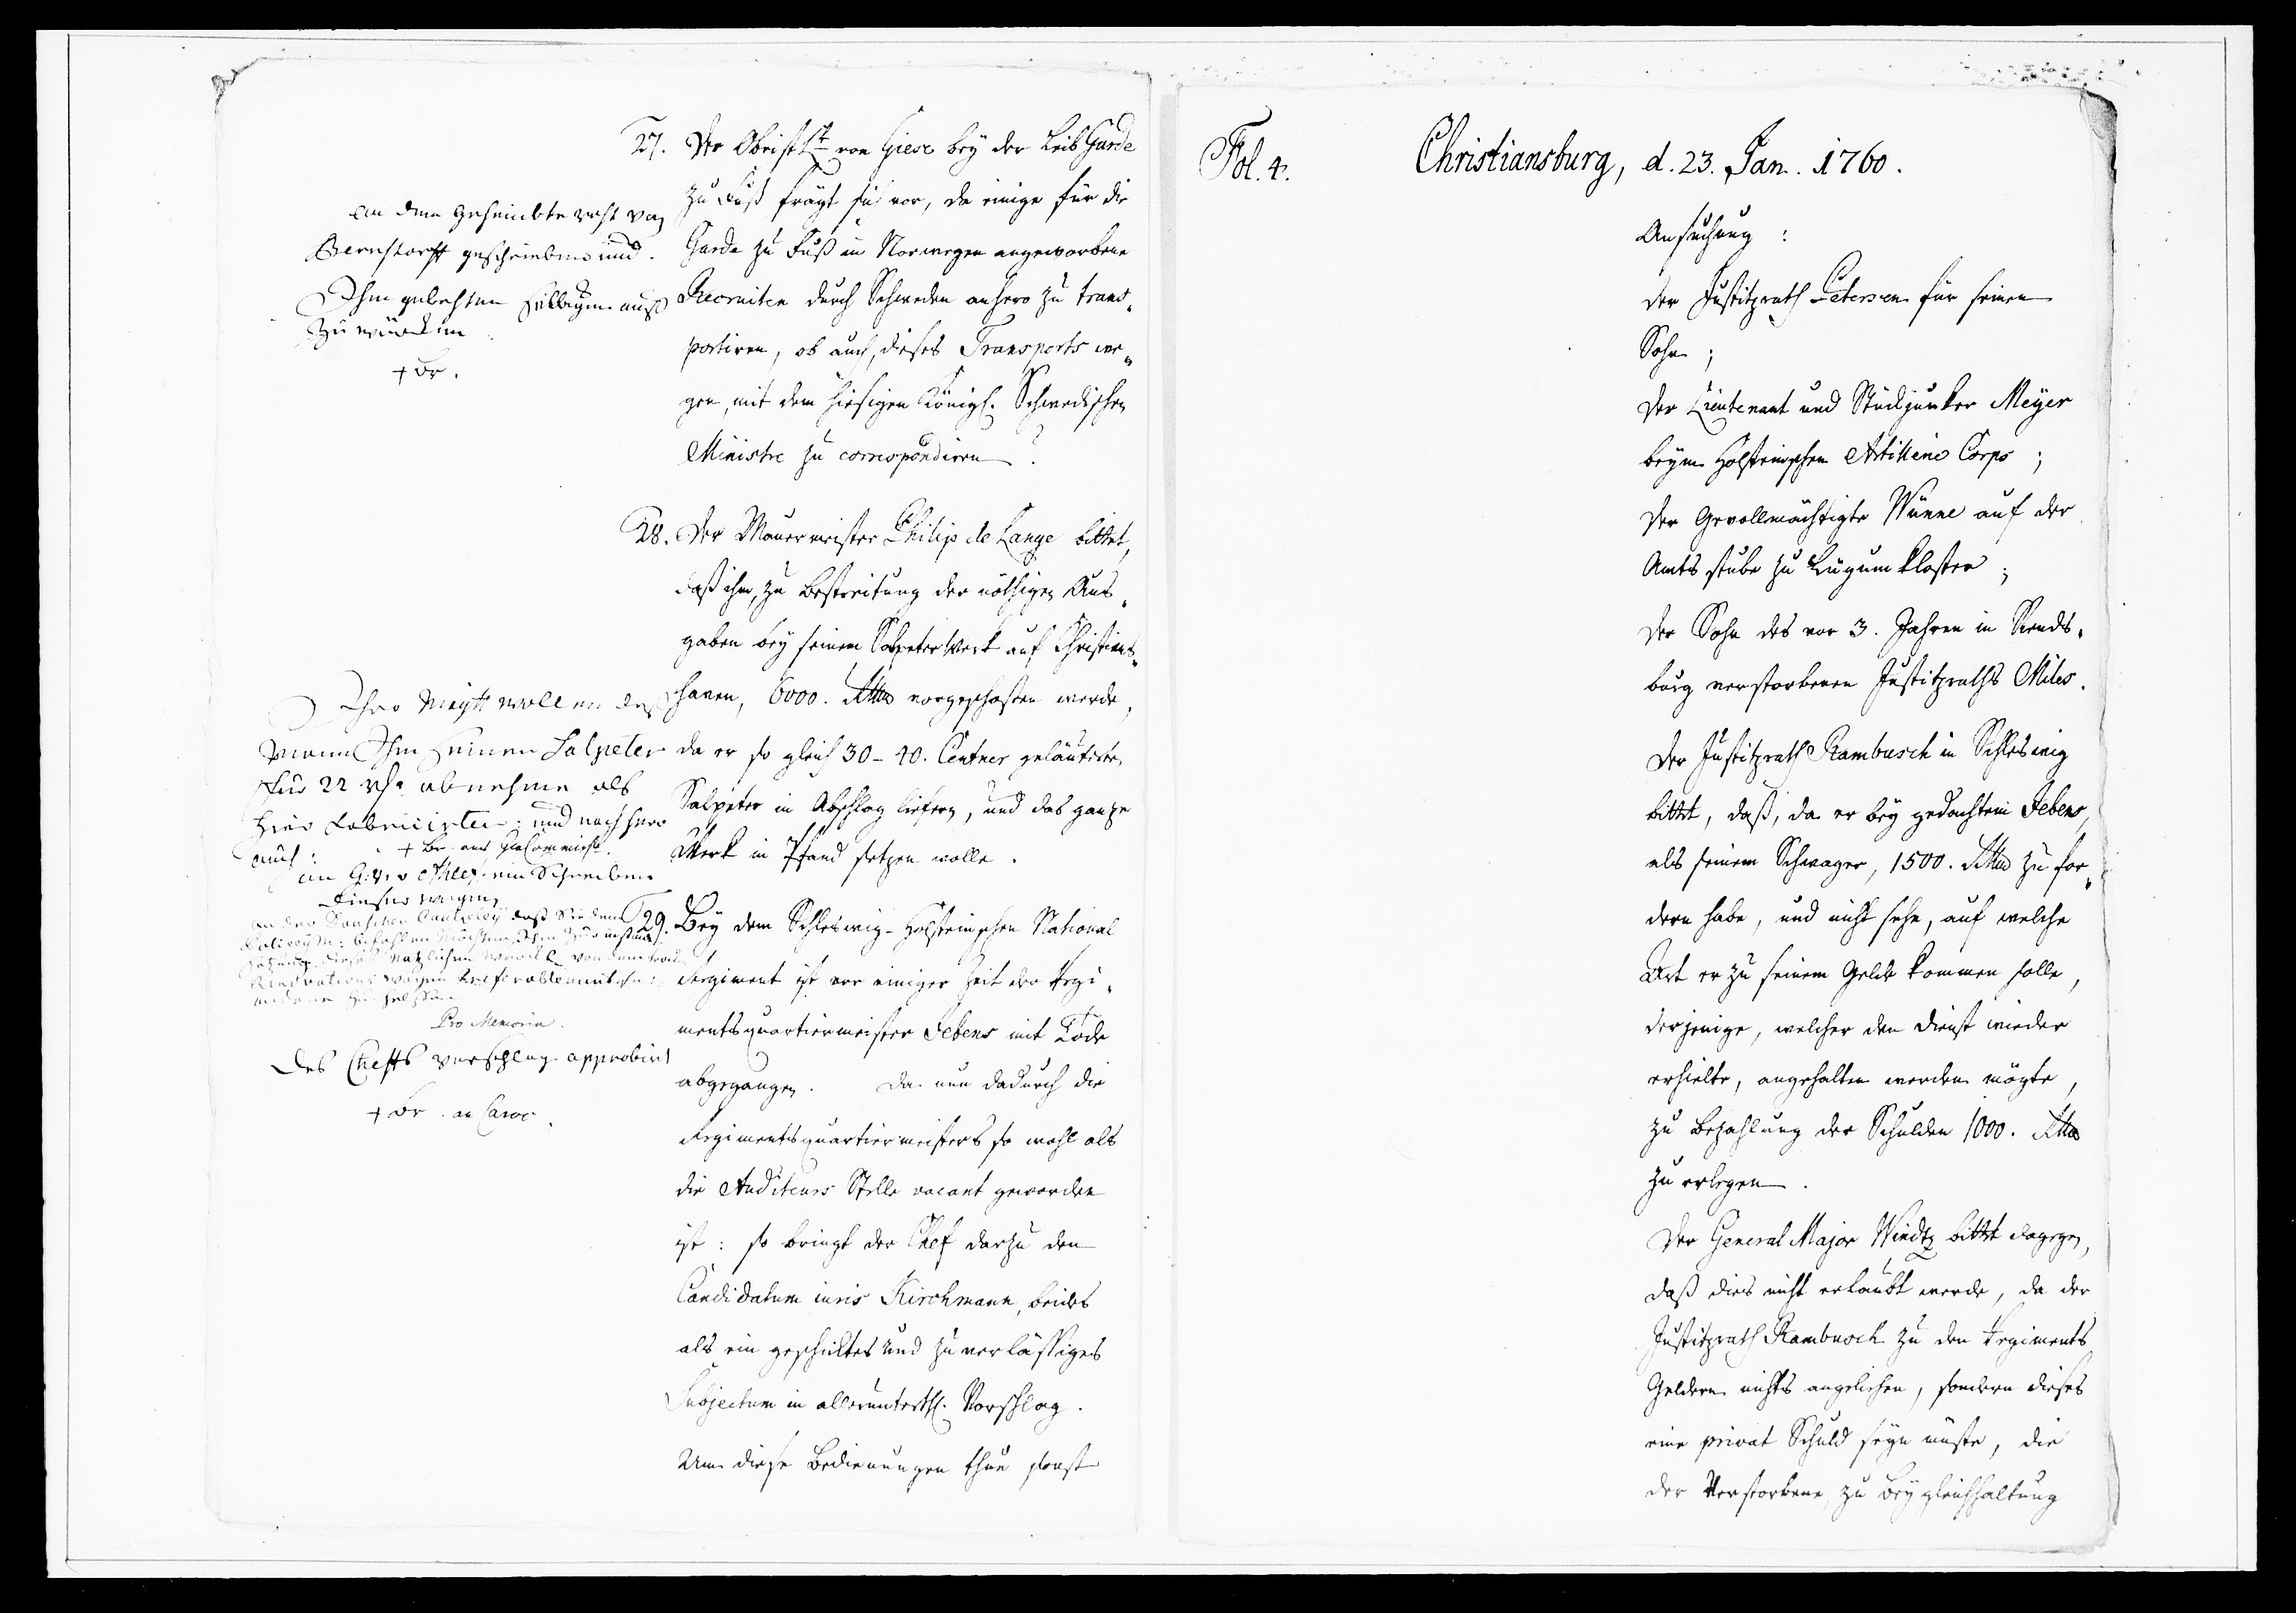 27. Der Obristlt von Giese bey der Leib Garde
zu Fuß frägt sich vor, da einige für die
Garde zu Fuß in Norwegen angeworbene
Recruiten durch Schweden anhero zu trans-
portiren, ob auch, dieses Transports we-
gen, mit dem hiesigen Königl. Schwedischen
Ministre zu correspondiren?
an den Geheimbte raht von
Bernstorff geschrieben und
Ihm gebehten selbigen auß
zu würcken
+ Br.
28. Der Mauermeister Philip de Lange bittet,
daß ihm, zu Bestreitung der nöthigen Aus-
gaben bey seinem Salpeter Werk auf Christians-
haven, 6000. Rthlr vorgeschossen werde,
da er so gleich 30-40. Centner geläuterten
Salpeter in Abschlag liefern, und das ganze
Werk in Pfand setzen wolle.
Ihro Maytt wollen daß
man Ihm seinen Salpeter
für 22 rh abnehme als
hier fabricirten: und nachhero
auch:
+ Br. ans Gn Commissr.
an G. v. Ahlef. ein Schreiben
dieser wegen
an der Danschen Cantzeley daß sie dem
Policey M: befehlen möchten, Ihm zur instand
setzung dieses nützlichen Werck
wegen preferablement
Pro Memoria.
29. Bey dem Schleswig-Holsteinschen National
Regiment ist vor einiger Zeit der Regi-
mentsquartiermeister Jebens mit Tode
abgegangen. Da nun dadurch die
Regimentsquartiermeisters so wohl als
die Auditeurs Stelle vacant geworden
ist: so bringt der Chef darzu den
Candidatum iuris Kirchmann, beides
als ein geschicktes und zuverlässiges
Subjectum in allerunterth. Vorschlag.
Um diese Bedienungen thun sonst
Des Cheffs vorschlag approbirt
+ Br. an Caroc.
Fol. 4.
Christiansburg, d. 23. Jan. 1760.
Ansuchung:
Der Justitzrath Petersen für seinen
Sohn;
Der Lieutenant und Stückjunker Meyer
beym Holsteinschen Artillerie Corps;
Der Gevollmächtigte Wünne auf der
Amtsstube zu Lügumkloster;
Der Sohn des vor 3. Jahren in Rends-
burg verstorbenen Justitzraths Miles.
Der Justitzrath Rambusch in Schleswig
bittet, daß, da er bey gedachtem Jebens,
als seinem Schwager, 1500. Rthlr zu for-
dern habe, und nicht sehe, auf welche
Art er zu seinem Gelde kommen solle,
derjenige, welcher den Dienst wieder
erhielte, angehalten werden mögte,
zu Bezahlung der Schulden 1000. Rthlr
zu erlegen.
Der General Major Windtz bittet dagegen,
daß dies nicht erlaubt werde, da der
Justitzrath Rambusch zu den Regiments
Geldern nichts angeliehen, sondern dieses
eine privat Schuld seyn müste, die
der Verstorbene, zu Beygleichhaltung